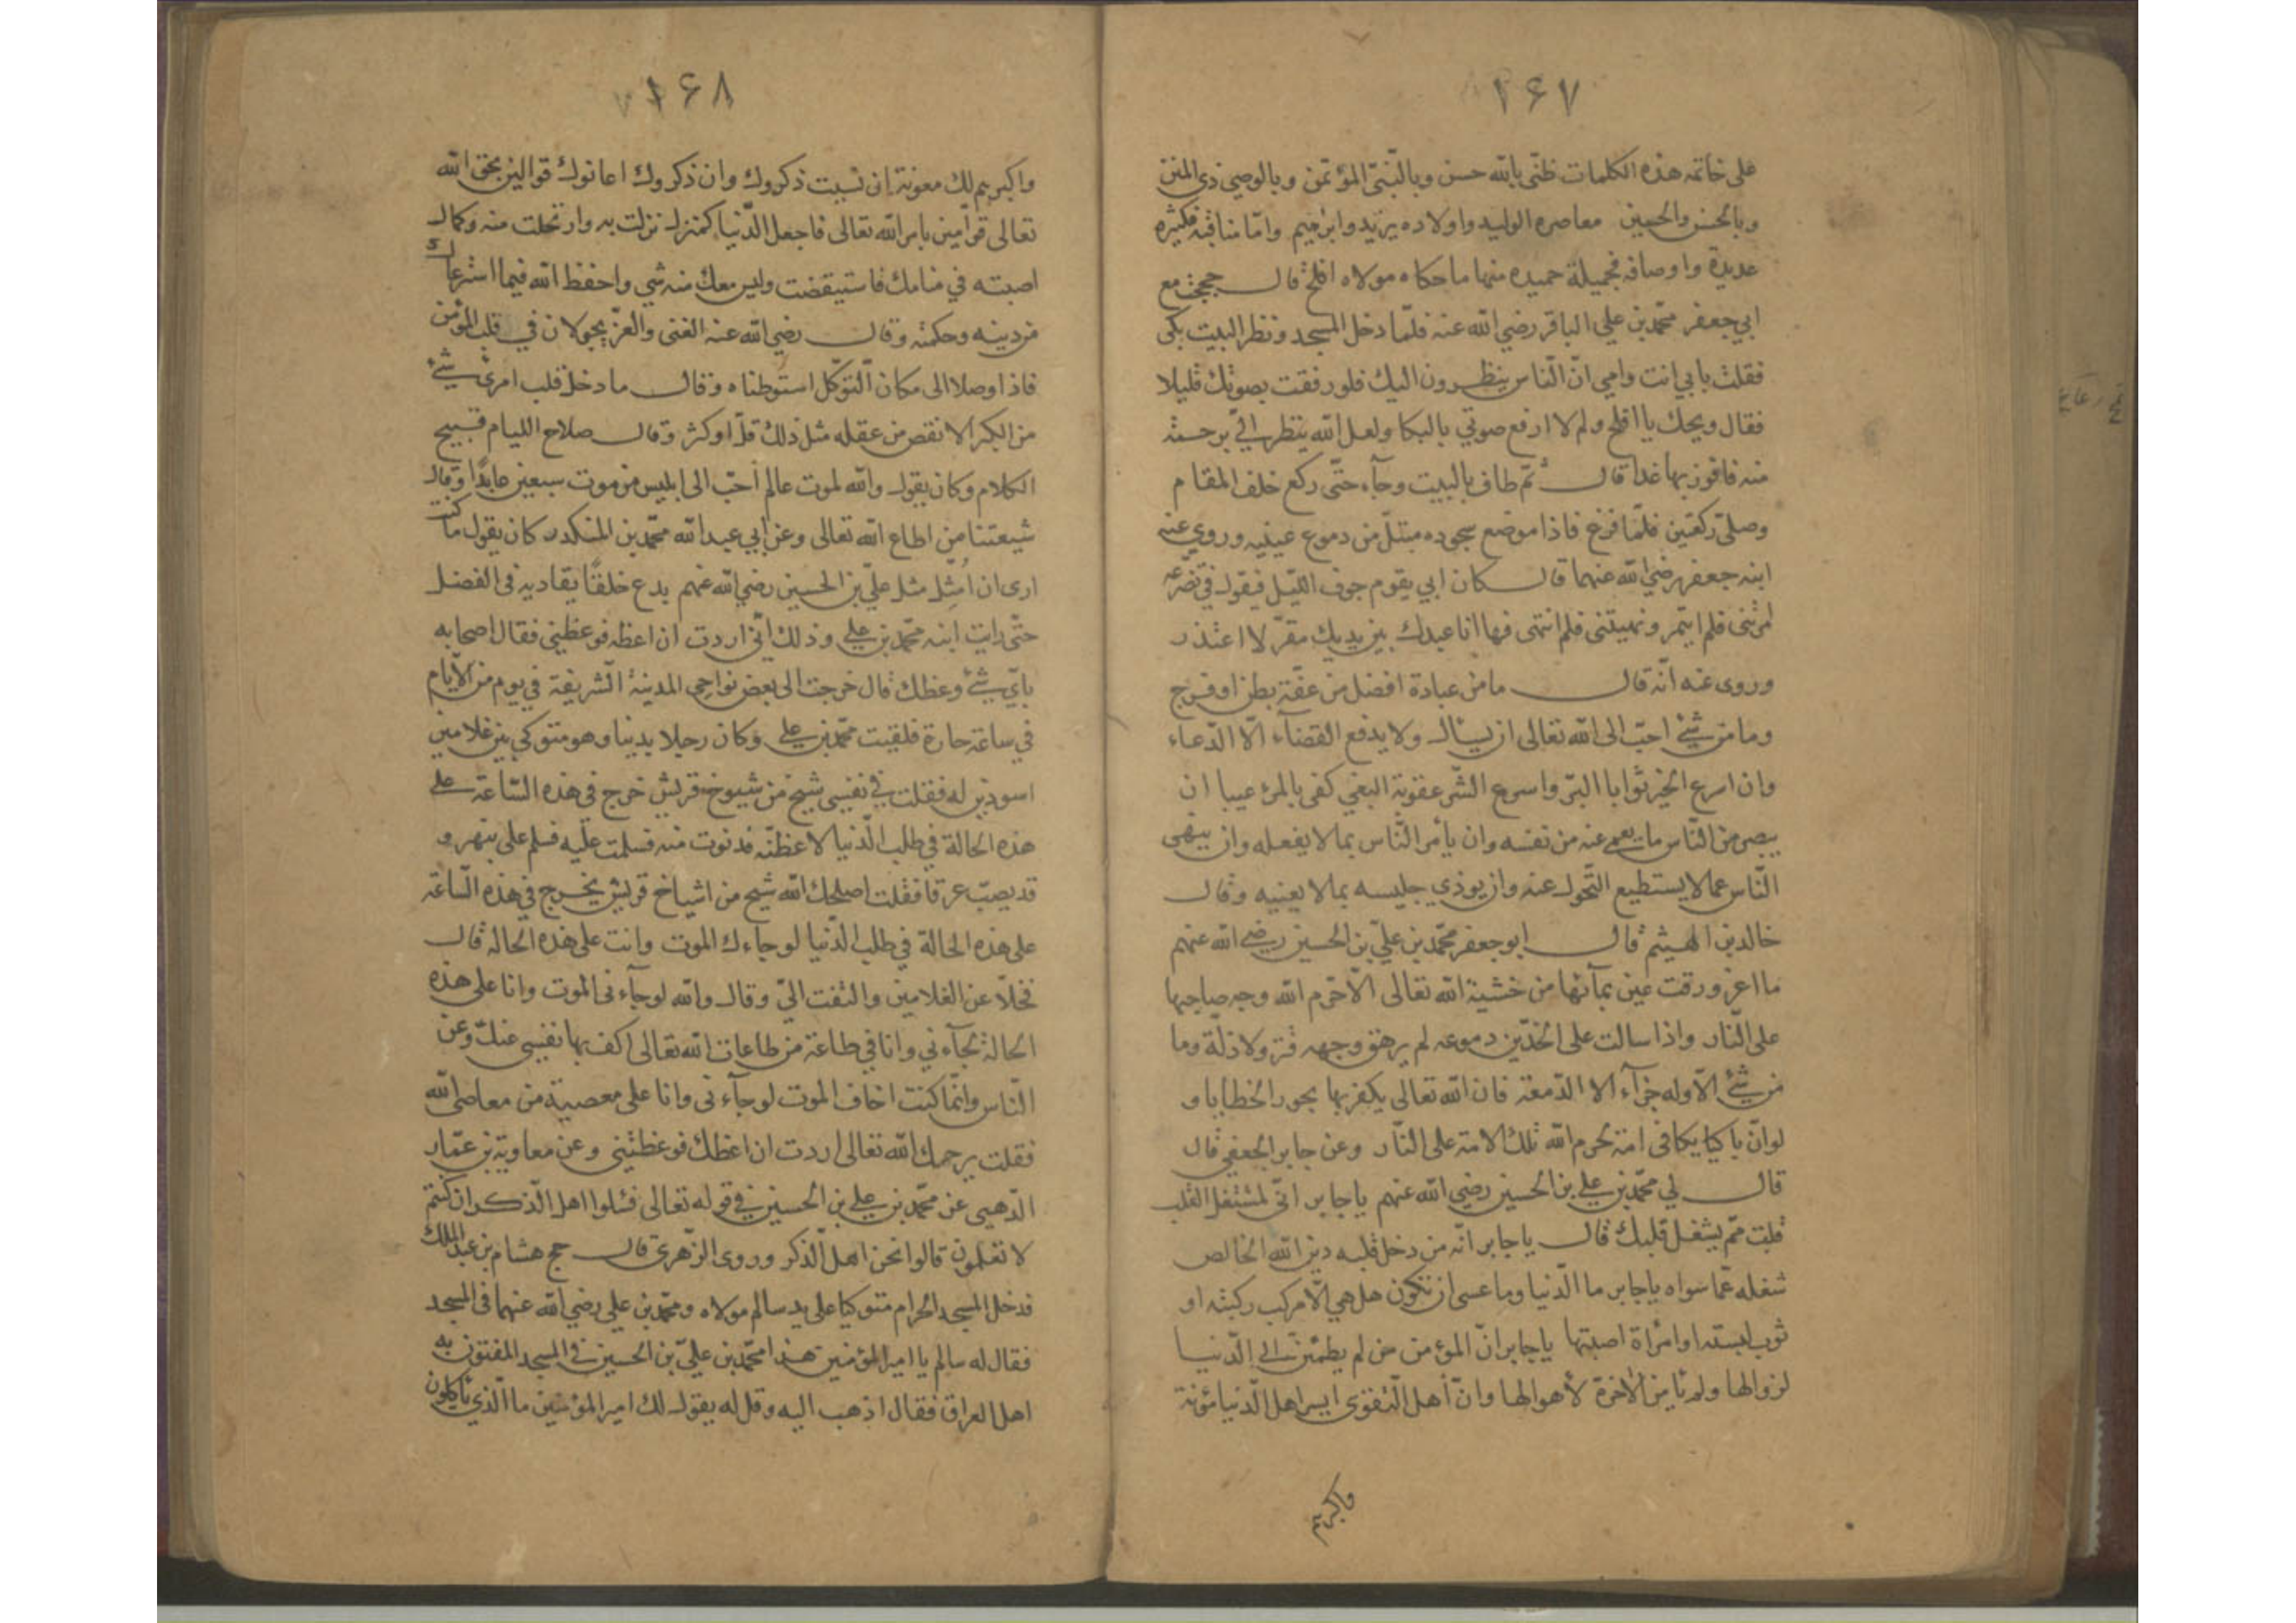 ١٦٧
على خاتمه هذه الكلمات ظنّي بالله حسن وبالنّبيّ المؤتمن وبالوصي ذي المنن
وبالحسن والحسين معاصره الوليد واولاده يزيد وابراهيم وامّا مناقبه فكثيره
عديدة واوصافه فجميلة حميده منها ما حكاه مولاه افلح قال حججت مع
ابي جعفر محمّد بن علي الباقر رضي الله عنه فلمّا دخل المسجد ونظر البيت بكى
فقلت بابي انت وامي انّ النّاس ينظرون اليك فلو رفقت بصوتك قليلا
فقال ويحك يا افلح ولم لا ارفع صوتي بالبكا ولعل الله ينظر اليّ برحمة
منه فافوز بها غدا قال ثمّ طاف بالبيت وجآء حتّى ركع خلف المقام
وصلّى ركعتين فلمّا فرغ فاذا موضع سجوده مبتلّ من دموع عينيه وروي عنه
ابنه جعفر رضي الله عنهما قال كان ابي يقوم جوف اللّيل فيقول في تضرّعه
امرتنى فلم ايتمر ونهيتنى فلم انتهى فها انا عبدك بين يديك مقرّ لا اعتذر
وروى عنه انّه قال ما من عبادة افضل من عفّة بطن او فرج
وما من شئ احبّ الى الله تعالى ان يسال ولا يدفع القضآء الّا الدّعاء
وان اسرع الخير ثوابا البرّ واسرع الشّر عقوبة البغي كفى بالمرء عيبا ان
يبصر من النّاس ما يعمى عنه من نفسه وان يأمر النّاس بما لا يفعله وان ينهى
النّاس عما لا يستطيع التّحول عنه وان يوذي جليسه بما لا يعنيه وقال
خالد بن الهيثم قال ابو جعفر محمّد بن عليّ بن الحسين رضي الله عنهم
ما اغرورقت عين بمآئها من خشية الله تعالى الّا حرّم الله وجه صاحبها
على النّار واذا سالت على الخدّين دموعه لم يرهق وجهه قتر ولا ذلّة وما
من شئ الّا وله جزآء الا الدّمعة فان الله تعالى يكفر بها بحور الخطايا و
لو انّ باكيا يبكا فى امة لحرم الله تلك الامة على النّار وعن جابر الجعفي قال
قال لي محمّد بن علي بن الحسين رضي الله عنهم يا جابر انّى لمشتغل القلب
قلت ممّ يشغل قلبك قال يا جابر انّه من دخل قلبه دين الله الخالص
شغله عمّا سواه يا جابر ما الدّنيا وما عسى ان تكون هل هي الّا مركب ركبته او
ثوب لبسته او امرأة اصبتها يا جابر انّ المؤمن من لم يطمئن الى الدّنيا
لزوالها ولم يأمن الآخرة لأهوالها وانّ أهل التّقوى ايسر اهل الدّنيا مؤنة
واكبرهم
١٦٨
واكبرهم لك معونة ان نسيت ذكروك وان ذكروك اعانوك قوالين بحق الله
تعالى قوّامين بامر الله تعالى فاجعل الدّنيا كمنزل نزلت به وارتحلت منه وكمال
اصبته في منامك فاستيقضت وليس معك منه شي واحفظ الله فيما استرعاك
من دينه وحكمته وقال رضي الله عنه الغنى والعزّ يجولان في قلب المؤمن
فاذ اوصلا الى مكان التّوكّل استوطناه وقال ما دخل قلب امرئ شئ
من الكبر الا نقص من عقله مثل ذلك قلّ او كثر وقال صلاح الليام قبيح
الكلام وكان يقول والله لموت عالم أحبّ الى ابليس من موت سبعين عابدًا وقال
شيعتنا من اطاع الله تعالى وعن ابي عبد الله محمّد بن المنكدر كان يقول ما كنت
ارى ان اُمثّل مثل عليّ بن الحسين رضي الله عنهم يدع خلفًا يقاديه في الفضل
حتّى رايت ابنه محمّد بن علي وذلك انّي اردت ان اعظه فوعظني فقال اصحابه
بايّ شئ وعظك قال خرجت الى بعض نواحى المدينة الشّريفة في يوم من الأيّام
في ساعة حارة فلقيت محمّد بن علي وكان رجلا بدينا وهو متوكي بين غلامين
اسودين له فقلت في نفسى شيخ من شيوخ قريش خرج فى هذه السّاعة على
هذه الحالة في طلب الدّنيا لاعظنّه فدنوت منه فسلمت عليه فسلم على بنهر و
قد يصبّ عرقا فقلت اصلحك الله شيخ من اشياخ قريش يخرج في هذه السّاعة
على هذه الحالة في طلب الدّنيا لو جاءك الموت وانت على هذه الحالة قال
فخلّا عن الغلامين والتفت اليّ وقال والله لو جآءنى الموت وانا على هذه
الحالة لجآءني وانا في طاعة من طاعات الله تعالى اكف بها نفسي عنك وعن
النّاس وانّما كنت اخاف الموت لو جآءنى وانا على معصية من معاصى الله
فقلت يرحمك الله تعالى اردت ان اعظك فوعظتني وعن معاوية بن عمّار
الدّهبى عن محمّد بن علي بن الحسين في قوله تعالى فسئلوا اهل الذّكر ان كنتم
لا تعلمون قالوا نحن اهل الذّكر وروى الزّهرى قال حج هشام بن عبد الملك
فدخل المسجد الحرام متوكيا على يد سالم مولاه ومحمّد بن علي رضي الله عنهما فى المسجد
فقال له سالم يا امير المؤمنين هذا محمّد بن عليّ بن الحسين في المسجد المفتون به
اهل العراق فقال اذهب اليه وقل له يقول لك امير المؤمنين ما الّذي يأكلون